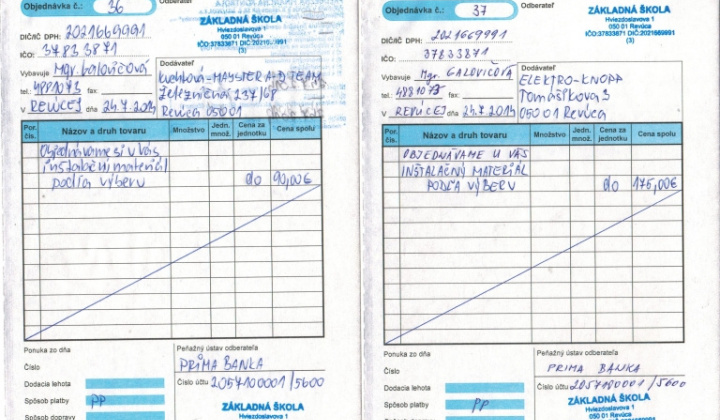 Objednávka č.: 36
Odberateľ
ZÁKLADNÁ ŠKOLA
Hviezdoslavova 1
050 01 Revúca
IČO:37833871
(3)
DIČ/IČ DPH: 2021669991
IČO: 37833871
Vybavuje Mgr. Galovičová
tel.: 4881073 fax:
V REVÚCEJ dňa 24.7.2014
Dodávateľ
MAJSTER A-D TEAM
Železničná 237/68
Revúca 05001
Por. čís.
Názov a druh tovaru
Množstvo
Jedn. množ.
Cena za jednotku
Cena spolu
Objednávame si u Vás
inštalačný materiál
podľa výberu do 90,00€
Ponuka zo dňa
Číslo
Dodacia lehota
Spôsob platby PP
Spôsob dopravy
Peňažný ústav odberateľa
PRIMA BANKA
Číslo účtu 2057100001/5600
ZÁKLADNÁ ŠKOLA
Hviezdoslavova 1
050 01 Revúca
Objednávka č.: 37
Odberateľ
ZÁKLADNÁ ŠKOLA
Hviezdoslavova 1
050 01 Revúca
IČO:37833871 DIČ:2021669991
(3)
DIČ/IČ DPH: 2021669991
IČO: 37833871
Vybavuje Mgr. GALOVIČOVÁ
tel.: 4881073 fax:
V REVÚCEJ dňa 24.7.2014
Dodávateľ
ELEKTRO-KNOPP
Tomášikova 3
050 01 Revúca
Por. čís.
Názov a druh tovaru
Množstvo
Jedn. množ.
Cena za jednotku
Cena spolu
OBJEDNÁVAME U VÁS
INŠTALAČNÝ MATERIÁL
PODĽA VÝBERU do 175,00€
Ponuka zo dňa
Číslo
Dodacia lehota
Spôsob platby PP
Spôsob dopravy
Peňažný ústav odberateľa
PRIMA BANKA
Číslo účtu 2057100001/5600
ZÁKLADNÁ ŠKOLA
Hviezdoslavova 1
050 01 Revúca